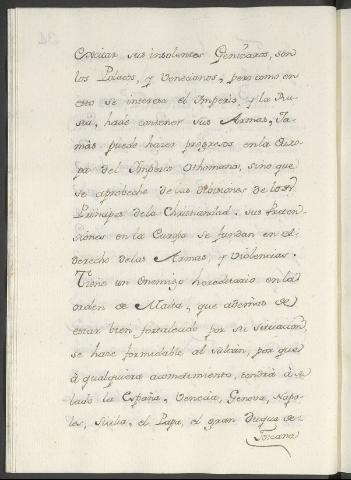 Excitar sus insolentes Genizaros, son
los Polacos, y Venecianos, pero como en
esto se interesa el Imperio, y la Ru-
sia, hade contener sus Armas, Ja-
más puede hazer progresos en la Euro-
pa del Imperio Othomano, sino que
se aprobeche de las Divisiones de los
Principes de la Christiandad: sus Preten-
siones en la Europa se fundan en el
derecho de las Armas, y Violencias.
Tiene un enemigo hereditario en la
orden de Malta, que ademas de
estar bien fortalecido por su Situacion
se haze formidable al Sultán, por que
à qualquiera acometimiento, tendrá à su
lado la España, Venecia, Genova, Napo-
les, Sicilia, el Papa, el gran Duque de
Toscana